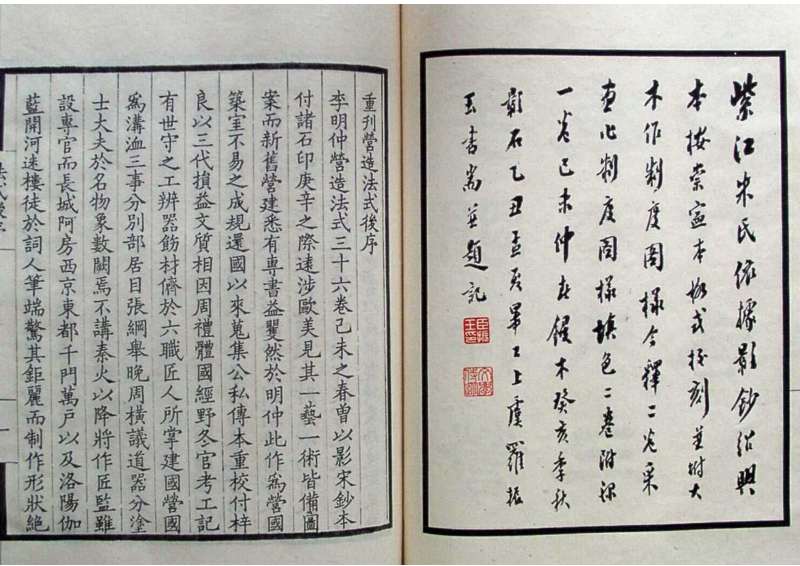 紫江朱氏依據影鈔紹興
本按崇寧本格式校刻並坿大
木作制度圖樣今釋二卷采
畫作制度圖樣填色二卷附
一卷己未仲春鋟木癸亥季秋
石乙丑孟夏畢工上虞羅振
玉書耑並題記
重刊營造法式後序
李明仲營造法式三十六卷己未之春曾以影宋鈔本
付諸石印庚辛之際遠涉歐美見其一藝一術皆備圖
案而新舊營建悉有專書益矍然於明仲此作爲營國
築室不易之成規還國以來蒐集公私傳本重校付梓
良以三代損益文質相因周禮體國經野冬官考工記
有世守之工辨器飭材儕於六職匠人所掌建國營國
爲溝洫三事分別部居目張綱舉晚周橫議道器分塗
士大夫於名物象數闕焉不講秦火以降將作匠監雖
設專官而長城阿房西京東都千門萬戶以及洛陽伽
藍開河迷樓徒於詞人筆端驚其鉅麗而制作形狀絕